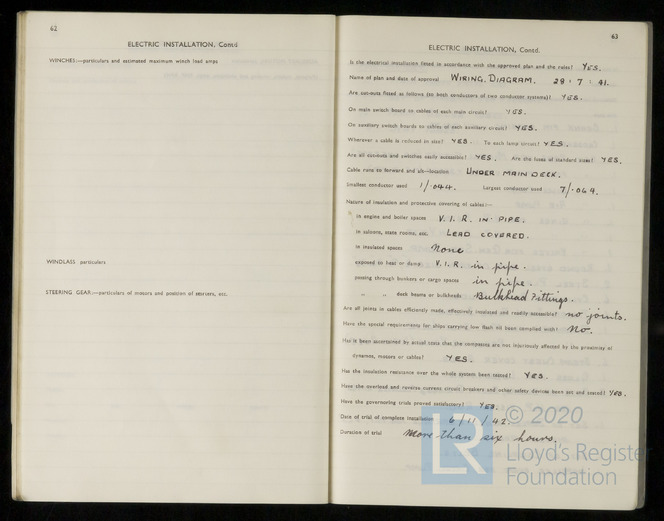 62
ELECTRIC INSTALLATION, Contd
WINCHES:—particulars and estimated maximum winch load amps
WINDLASS particulars
STEERING GEAR:—particulars of motors and position of starters, etc.
63
ELECTRIC INSTALLATION, Contd.
Is the electrical installation fitted in accordance with the approved plan and the rules? YES.
Name of plan and date of approval WIRING. DIAGRAM. 28:7:41.
Are cut-outs fitted as follows (to both conductors of two conductor systems)? YES.
On main switch board to cables of each main circuit? YES.
On auxiliary switch boards to cables of each auxiliary circuit? YES.
Wherever a cable is reduced in size? YES. To each lamp circuit? YES.
Are all cut-outs and switches easily accessible? YES. Are the fuses of standard sizes? YES.
Cable runs to forward and aft—location UNDER MAIN DECK.
Smallest conductor used 1/.044. Largest conductor used 7/.064.
Nature of insulation and protective covering of cables:—
in engine and boiler spaces V.I.R. IN PIPE.
in saloons, state rooms, etc. LEAD COVERED.
in insulated spaces None
exposed to heat or damp V.I.R. in pipe.
passing through bunkers or cargo spaces in pipe.
" " deck beams or bulkheads Bulkhead Fittings.
Are all joints in cables efficiently made, effectively insulated and readily accessible? no joints.
Have the special requirements for ships carrying low flash oil been complied with? No.
Has it been ascertained by actual tests that the compasses are not injuriously affected by the proximity of
dynamos, motors or cables? YES.
Has the insulation resistance over the whole system been tested? YES.
Have the overload and reverse current circuit breakers and other safety devices been set and tested? YES.
Have the governing trials proved satisfactory? YES.
Date of trial of complete installation 6/11/42.
Duration of trial More than six hours.
LR © 2020
Lloyd's Register
Foundation